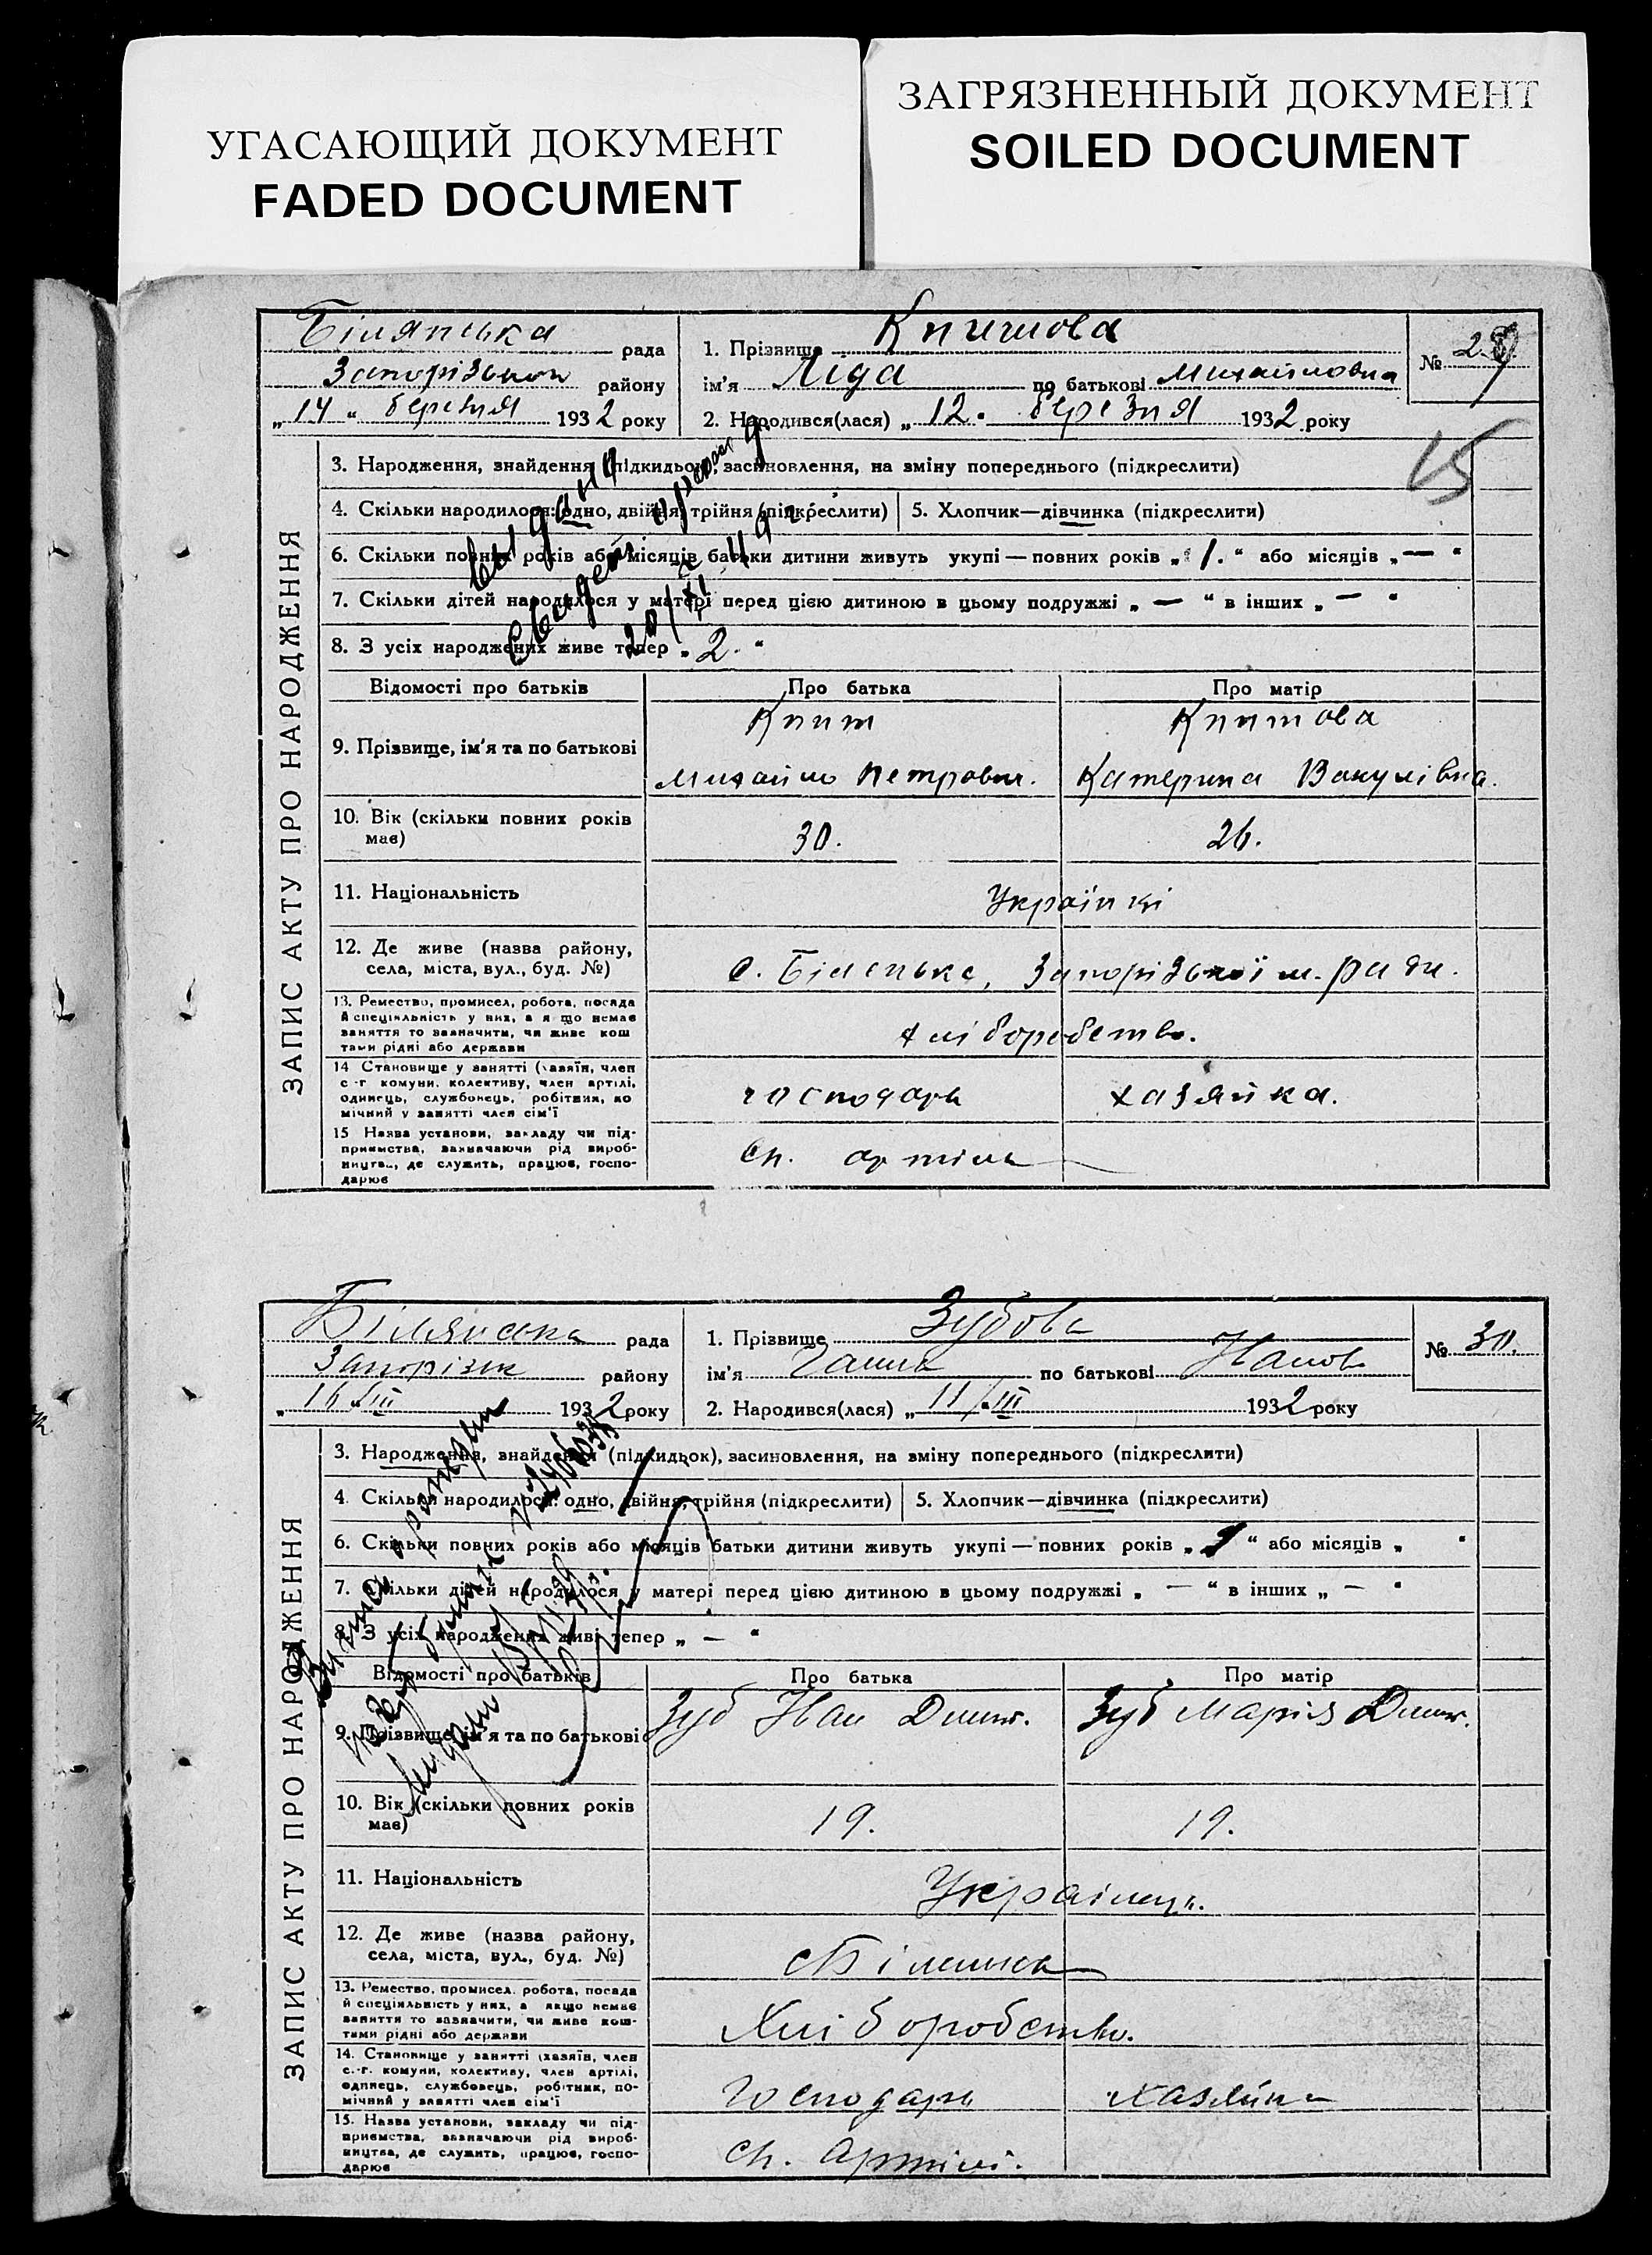 УГАСАЮЩИЙ ДОКУМЕНТ
FADED DOCUMENT
ЗАГРЯЗНЕННЫЙ ДОКУМЕНТ
SOILED DOCUMENT
рада
району
„14“ березня 1932 року
1. Прізвище
ім'я Ліда по батькові Михайловна
2. Народився(лася) „12. березня 1932 року
№
15
ЗАПИС АКТУ ПРО НАРОДЖЕННЯ
3. Народження, знайдення (підкидьок), засиновлення, на зміну попереднього (підкреслити)
4. Скільки народилося: одно, двійня, трійня (підкреслити)
5. Хлопчик—дівчинка (підкреслити)
6. Скільки повних років або місяців батьки дитини живуть укупі—повних років „1.“ або місяців „—“
7. Скільки дітей народилося у матері перед цією дитиною в цьому подружжі „—“ в інших „—“
8. З усіх народжених живе тепер „2.“
Відомості про батьків
Про батька
Про матір
9. Прізвище, ім'я та по батькові
Михайло Петрович.
Катерина Вакулівна.
10. Вік (скільки повних років
має)
30.
26.
11. Національність
Українці
12. Де живе (назва району,
села, міста, вул., буд. №)
с. Біленьке, Запорізької м. ради.
13. Ремество, промисел, робота, посада
й спеціяльність у них, а якщо немає
заняття то зазначити, чи живе кош
тами рідні або держави
хліборобство.
14 Становище у занятті (хазяїн, член
с.-г комуни, колективу, член артілі,
одинець, службовець, робітник, по
мічний у занятті член сім'ї
господарь
хазяйка.
15 Назва установи, закладу чи під-
приємства, зазначаючи рід вироб-
ництва, де служить, працює, госпо-
дарює
Сп. артіль
рада
району
16/III 1932 року
1. Прізвище Зубова
ім'я по батькові
2. Народився(лася) „11/III 1932 року
№ 30.
ЗАПИС АКТУ ПРО НАРОДЖЕННЯ
3. Народження, знайдення (підкидьок), засиновлення, на зміну попереднього (підкреслити)
4. Скільки народилося: одно, двійня, трійня (підкреслити)
5. Хлопчик—дівчинка (підкреслити)
6. Скільки повних років або місяців батьки дитини живуть укупі—повних років „ “ або місяців „ “
7. Скільки дітей народилося у матері перед цією дитиною в цьому подружжі „—“ в інших „—“
8. З усіх народжених живі тепер „—“
Відомості про батьків
Про батька
Про матір
9. Прізвище, ім'я та по батькові
Зуб Іван Дмит.
Зуб Марія Дмит.
10. Вік (скільки повних років
має)
19.
19.
11. Національність
12. Де живе (назва району,
села, міста, вул., буд. №)
13. Ремество, промисел, робота, посада
й спеціяльність у них, а якщо немає
заняття то зазначити, чи живе кош-
тами рідні або держави
Хліборобство.
14. Становище у занятті (хазяїн, член
с.-г. комуни, колективу, член артілі,
одинець, службовець, робітник, по-
мічний у занятті член сім'ї
Господарь
хазяйка
15. Назва установи, закладу чи під-
приємства, зазначаючи рід вироб-
ництва, де служить, працює, госпо-
дарює
Сп. Артілі.